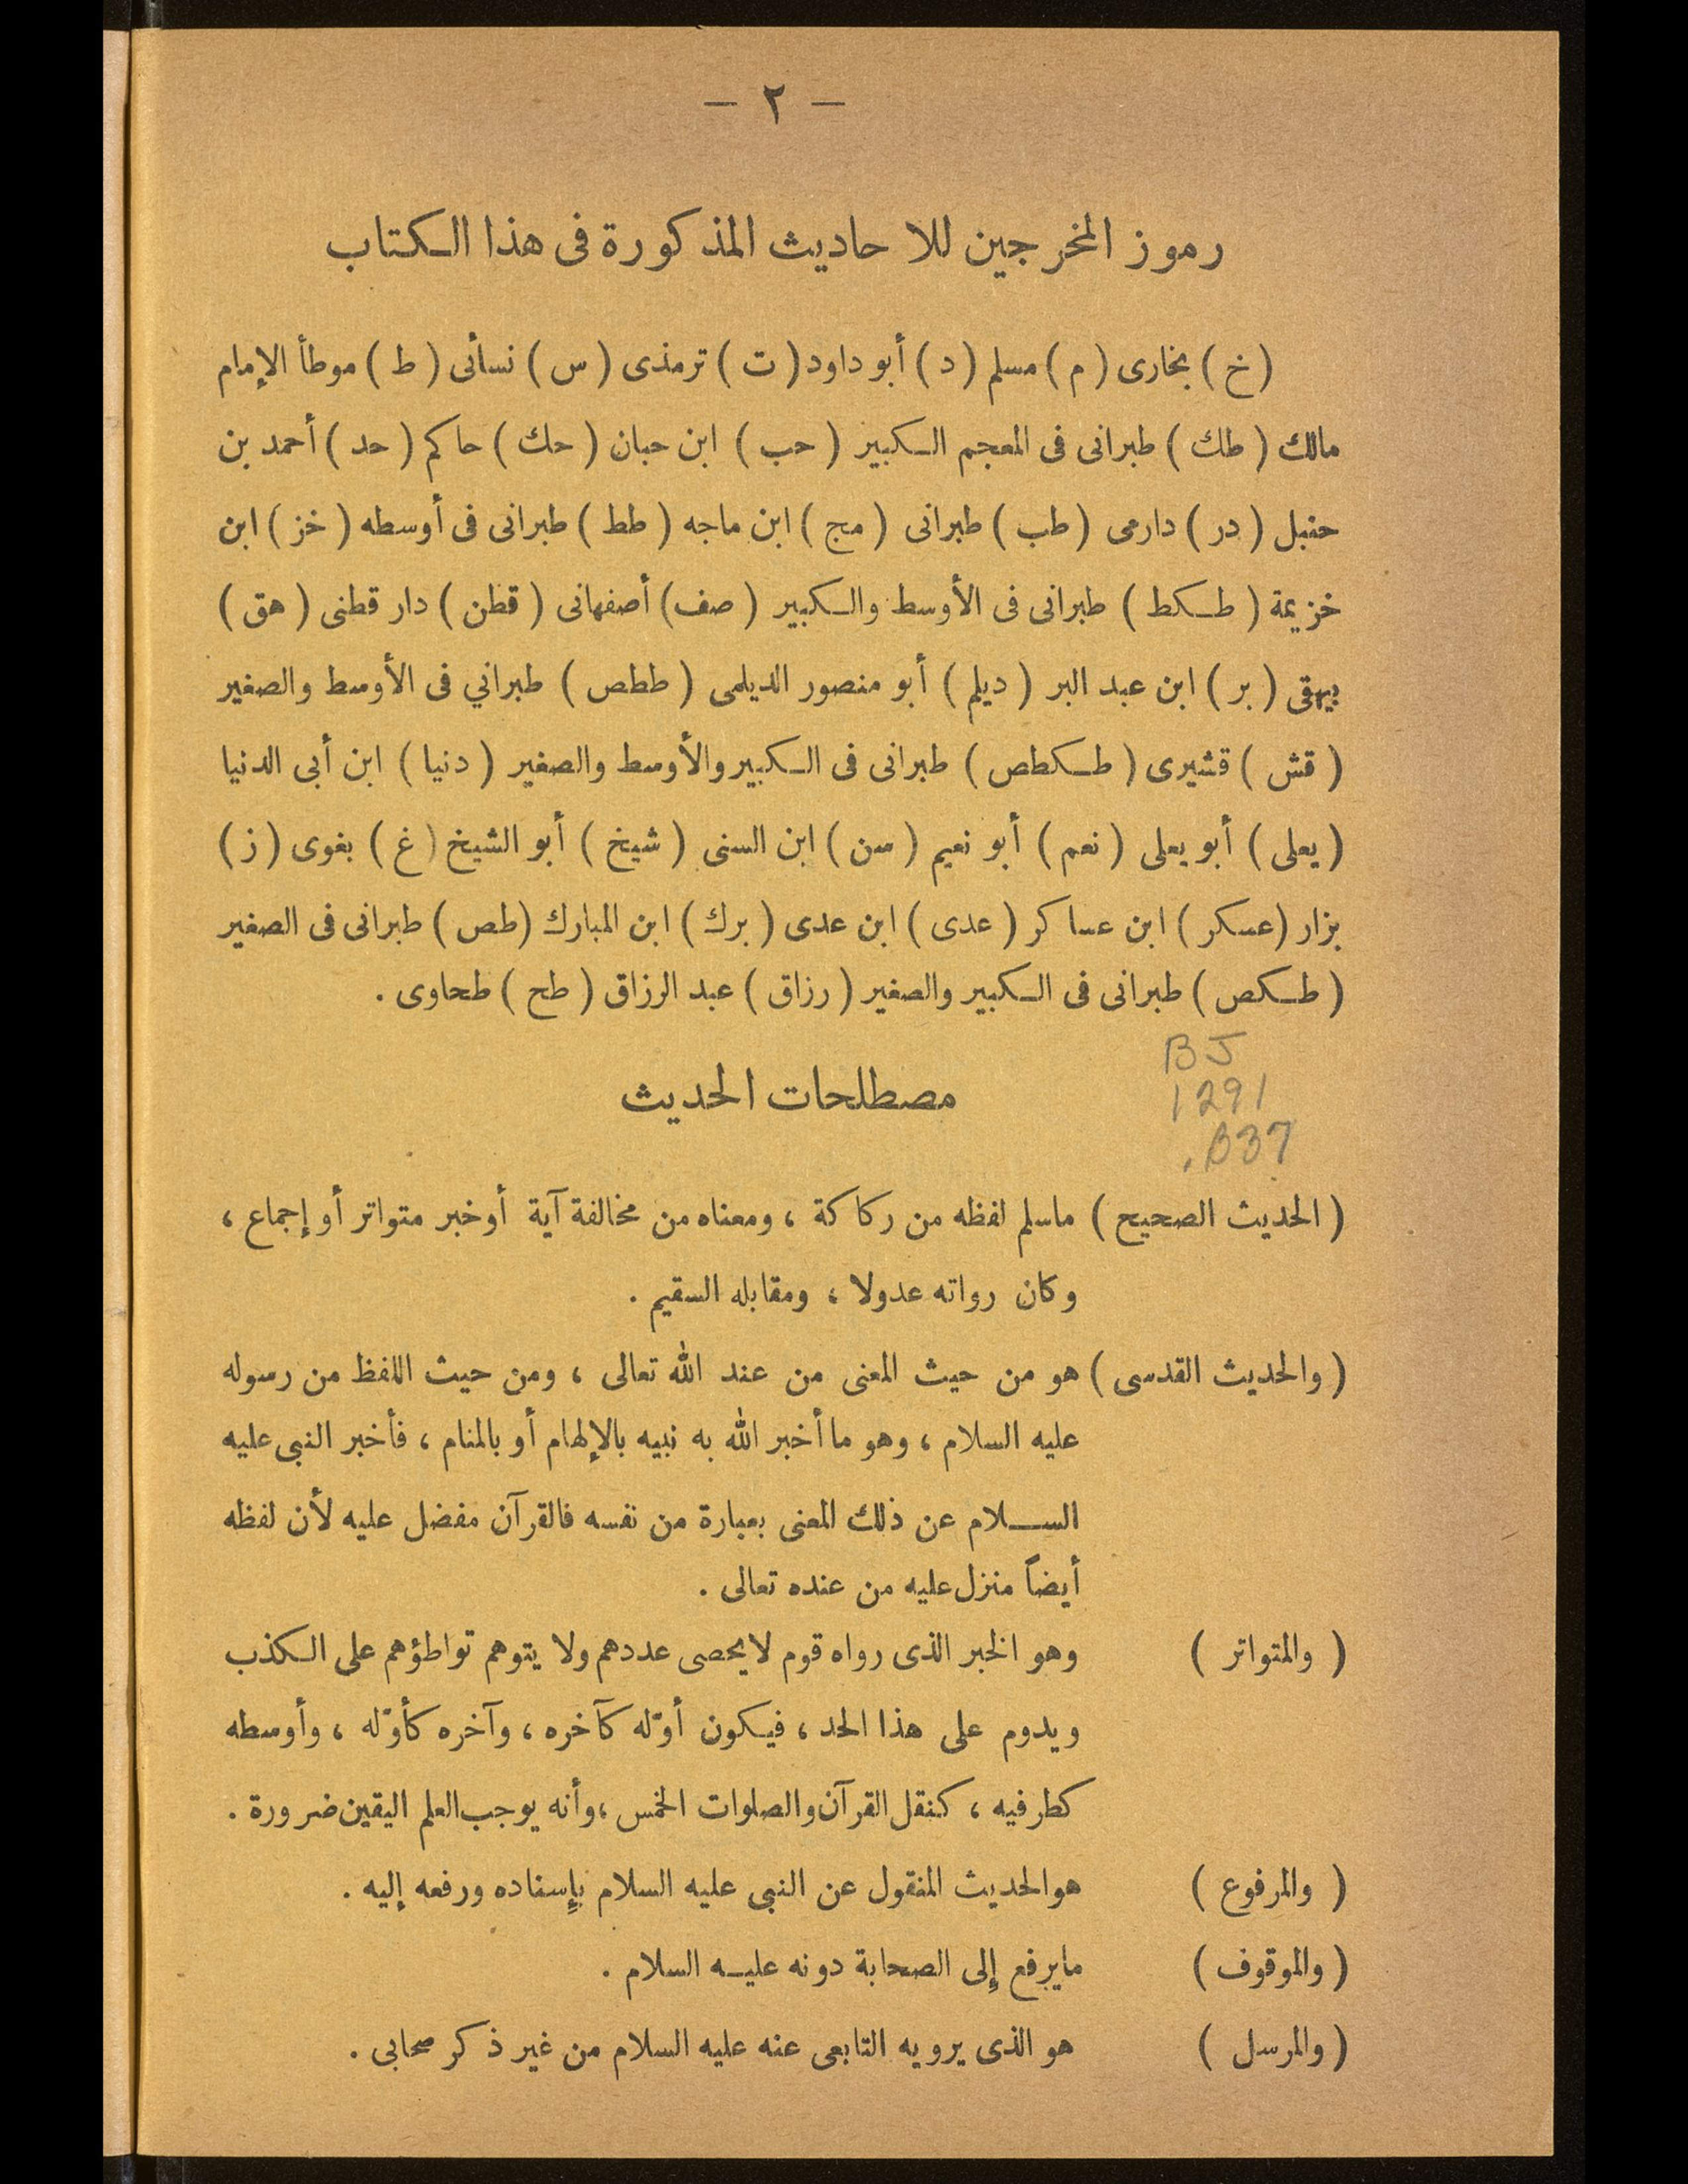 — ٢ —
رموز المخرجين للاحاديث المذكورة فى هذا الكتاب
( خ ) بخارى ( م ) مسلم ( د ) أبو داود ( ت ) ترمذى ( س ) نسأئى ( ط ) موطأ الإمام
مالك ( طك ) طبرانى فى المعجم الكبير ( حب ) ابن حبان ( حك ) حاكم ( حد ) أحمد بن
حنبل ( در ) دارمى ( طب ) طبرانى ( مج ) ابن ماجه ( طط ) طبرانى فى أوسطه ( خز ) ابن
خزيمة ( طكط ) طبرانى فى الأوسط والكبير ( صف ) أصفهانى ( قطن ) دار قطنى ( هق )
بيهقى ( بر ) ابن عبد البر ( ديلم ) أبو منصور الديلمى ( ططص ) طبراني فى الأوسط والصغير
( قش ) قشيرى ( طكطص ) طبرانى فى الكبير والأوسط والصغير ( دنيا ) ابن أبى الدنيا
( يعلى ) أبو يعلى ( نعم ) أبو نعيم ( سن ) ابن السنى ( شيخ ) أبو الشيخ ( غ ) بغوى ( ز )
بزار ( عسكر ) ابن عساكر ( عدى ) ابن عدى ( برك ) ابن المبارك ( طص ) طبرانى فى الصغير
( طكص ) طبرانى فى الكبير والصغير ( رزاق ) عبد الرزاق ( طح ) طحاوى .
BJ
1291
.B37
مصطلحات الحديث
( الحديث الصحيح ) ماسلم لفظه من ركاكة ، ومعناه من مخالفة آية أوخبر متواتر أو إجماع ،
وكان رواته عدولا ، ومقابله السقيم .
( والحديث القدسى ) هو من حيث المعنى من عند الله تعالى ، ومن حيث اللفظ من رسوله
عليه السلام ، وهو ما أخبر الله به نبيه بالإلهام أو بالمنام ، فأخبر النبى عليه
السلام عن ذلك المعنى بعبارة من نفسه فالقرآن مفضل عليه لأن لفظه
أيضاً منزل عليه من عنده تعالى .
( والمتواتر ) وهو الخبر الذى رواه قوم لايحصى عددهم ولا يتوهم تواطؤهم على الكذب
ويدوم على هذا الحد ، فيكون أوّله كآخره ، وآخره كأوّله ، وأوسطه
كطرفيه ، كنقل القرآن والصلوات الخمس ، وأنه يوجب العلم اليقين ضرورة .
( والمرفوع ) هوالحديث المنقول عن النبى عليه السلام بإسناده ورفعه إليه .
( والموقوف ) مايرفع إلى الصحابة دونه عليه السلام .
( والمرسل ) هو الذى يرويه التابعى عنه عليه السلام من غير ذكر صحابى .